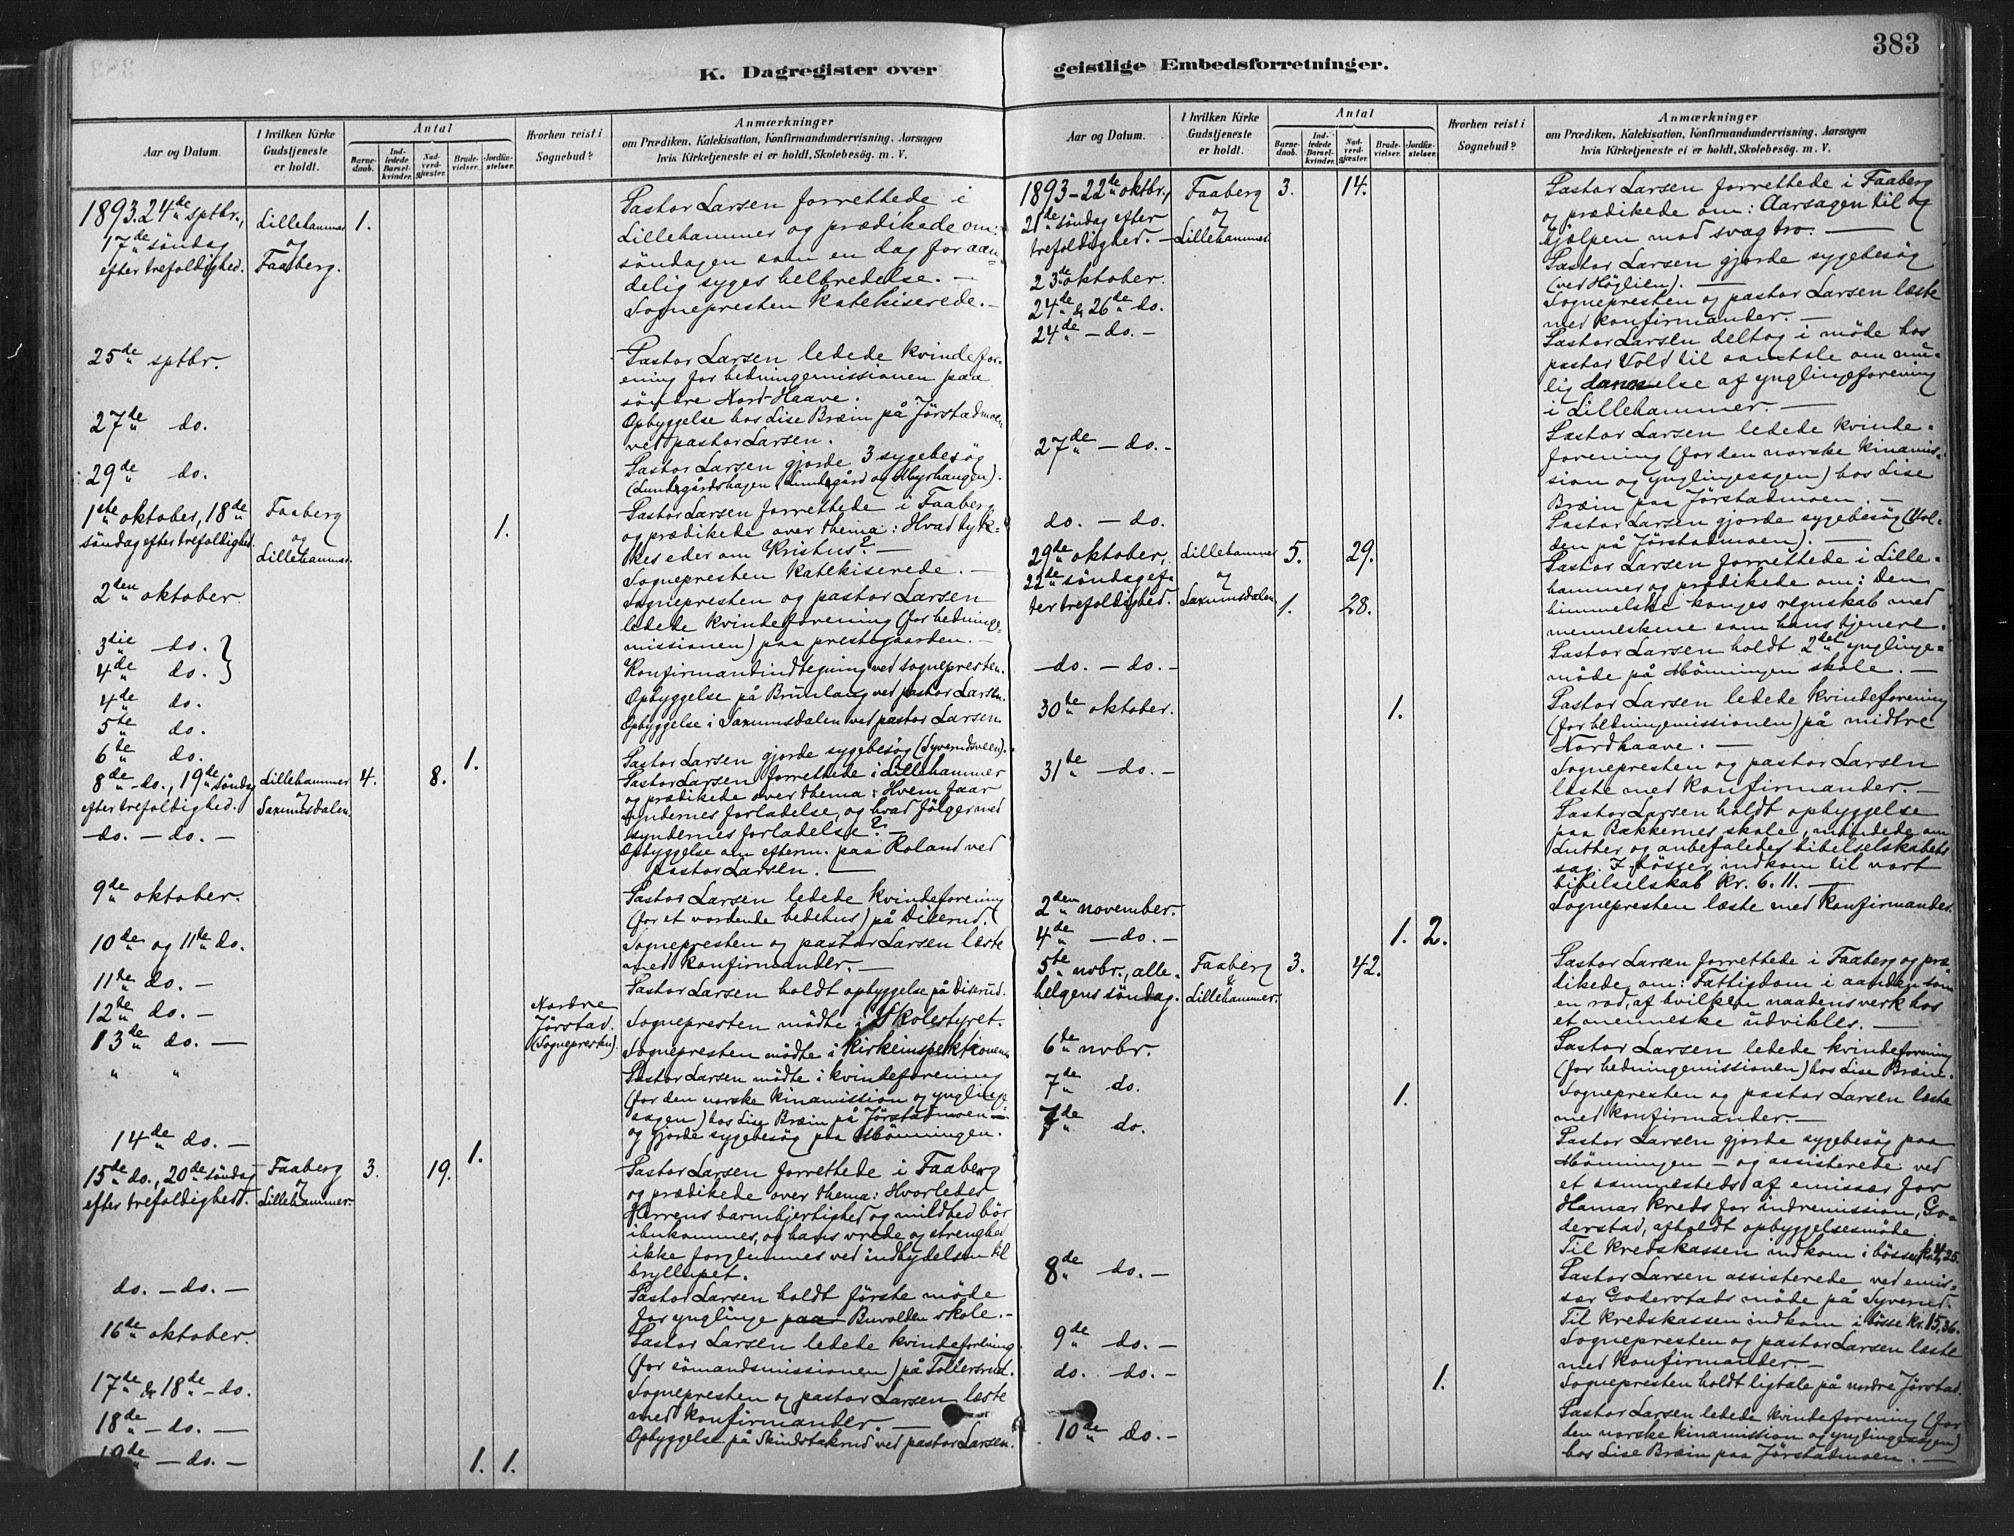 383
K. Dagregister over geistlige Embedsforretninger.
Aar og Datum.
I hvilken Kirke Gudstjeneste er holdt.
Antal
Barnedaab.
Indledede Barselkvinder.
Nadverdgjæster.
Brudevielser.
Jordfæstelser.
Hvorhen reist i Sognebud?
Anmærkninger
om Prædiken, Katekisation, Konfirmandundervisning, Aarsagen
hvis Kirketjeneste ei er holdt, Skolebesøg. m. V.
1893. 24de sptbr., Lillehammer 1. Pastor Larsen forrettede i
17de søndag og Lillehammer og prædikede om:
efter trefoldighed. Faaberg. søndagen som en dag for aan-
delig syges helbredelse. —
Sognepresten katekiserede. —
25de sptbr. Pastor Larsen ledede kvindefor-
ening for hedningemissionen paa
søndre Nord-Haave.
27de do. Opbyggelse hos Lise Bræin på Jørstadmoen
ved pastor Larsen.
29de do. Pastor Larsen gjorde 3 sygebesøg
(Lundgårdshagen, Lundgård og Myrhaugen).
1ste oktober, 18de Faaberg 1. Pastor Larsen forrettede i Faaberg
søndag efter trefoldighed og og prædikede over thema: Hvad tyk-
Lillehammer. kes eder om Kristus? —
Sognepresten katekiserede. —
2den oktober Sognepresten og pastor Larsen
ledede kvindeforening (for hedninge-
missionen) paa prestegaarden. —
3die do. }
4de do. } Konfirmandindtegning ved sognepresten.
4de do. Opbyggelse på Brunlaug ved pastor Larsen.
5te do. Opbyggelse i Saxumsdalen ved pastor Larsen.
6te do. 1. Pastor Larsen gjorde sygebesøg (Syverudsveen).
8de do., 19de søndag Lillehammer 4. 8. Pastor Larsen forrettede i Lillehammer
efter trefoldighed. og Saxumsdalen. og prædikede over thema: Hvem faar
syndernes forladelse, og hvad følger med
— do. — do. — syndernes forladelse? —
Opbyggelse om efterm. paa Roland ved
pastor Larsen. —
9de oktober. Pastor Larsen ledede kvindeforening
(for et vordende bedehus) på Diserud.
10de og 11te do. Sognepresten og pastor Larsen læste
med konfirmander. —
11te do. — Pastor Larsen holdt opbyggelse på Diserud.
12te do. — Nordre Jørstad. (Sognepresten). Sognepresten mødte i Skolestyret.
13de do. — Sognepresten mødte i kirkeinspektionen.
" " Pastor Larsen mødte i kvindeforening
(for den norske kinamission og ynglinge-
sagen) hos Lise Bræin på Jørstadmoen —
og gjorde sygebesøg paa Mønningen.
14de do. — 1.
15de do., 20de søndag Faaberg 3. 19. Pastor Larsen forrettede i Faaberg
efter trefoldighed. og Lillehammer. og prædikede over thema: Hvorledes
Herrens barmhjertighed og mildhed bør
ihukommes, og hans vrede og strenghed
ikke forglemmes ved indbydelsen til
bryllupet.
do. — do. — Pastor Larsen holdt første møde
for ynglinge paa Buvolden skole. —
16de oktober. Pastor Larsen ledede kvindeforening
(for sømandsmissionen) på Tollersrud.
17de & 18de — do. Sognepresten og pastor Larsen læste
med konfirmander. —
18de — do. — Opbyggelse på Skindstakrud ved pastor Larsen.
19de — do. — 1. 1.
Aar og Datum.
I hvilken Kirke Gudstjeneste er holdt.
Antal
Barnedaab.
Indledede Barselkvinder.
Nadverdgjæster.
Brudevielser.
Jordfæstelser.
Hvorhen reist i Sognebud?
Anmærkninger
om Prædiken, Katekisation, Konfirmandundervisning, Aarsagen
hvis Kirketjeneste ei er holdt, Skolebesøg. m. V.
1893 — 22de oktbr., Faaberg 3. 14. Pastor Larsen forrettede i Faaberg
21de søndag efter og og prædikede om: Aarsagen til og
trefoldighed. — Lillehammer. hjælpen mod svag tro. —
23de oktober. Pastor Larsen gjorde sygebesøg
(ved Høglien). —
24de & 26de do. Sognepresten og pastor Larsen læste
med konfirmander. —
24de — do. — Pastor Larsen deltog i møde hos
pastor Vold til samtale om mu-
lig dannelse af ynglingeforening
i Lillehammer. —
27de — do. — Pastor Larsen ledede kvinde-
forening (for den norske kinamis-
sion og ynglingesagen) hos Lise
Bræin paa Jørstadmoen. —
do. — do. Pastor Larsen gjorde sygebesøg (Vol-
den på Jørstadmoen). —
29de oktober, Lillehammer 5. 29. Pastor Larsen forrettede i Lille-
22de søndag ef- og hammer og prædikede om: Den
ter trefoldighed. Saxumsdalen 1. 28. himmelske konges regnskab med
menneskene som hans tjenere.
— do. — do. — Pastor Larsen holdt 2det ynglinge-
møde på Mønningen skole. —
30te oktober. 1. Pastor Larsen ledede kvindeforening
(for hedningemissionen) på midtre
Nordhaave. —
31te — do. — Sognepresten og pastor Larsen
læste med konfirmander. —
Pastor Larsen holdt opbyggelse
paa Bakkernes skole, mindede om
Luther og anbefalede bibelselskabets
sag. I bøsser indkom til vort
bibelselskab kr. 6.11. —
2den november. Sognepresten læste med konfirmander.
4de — do. — 1. 2.
5te nvbr., alle- Faaberg 3. 42. Pastor Larsen forrettede i Faaberg og præ-
helgens søndag. & Lillehammer. dikede om: Fattigdom i aanden som
en rod, af hvilken naadens verk hos
et menneske udvikles. —
6te nvbr. Pastor Larsen ledede kvindeforening
(for hedningemissionen) hos Lise Bræin.
7de do. 1. Sognepresten og pastor Larsen læste
med konfirmander. —
7de do. Pastor Larsen gjorde sygebesøg paa
Mønningen — og assisterede ved
et sammesteds af emissær for
Hamar kreds for indremission, Go-
derstad, afholdt opbyggelsesmøde.
Til kredskassen indkom i bøsser kr. 4,25.
8de do. — Pastor Larsen assisterede ved emis-
sær Goderstads møde på Syverud.
Til kredskassen indkom i bøsse kr. 15,36.
9de do. — Sognepresten og pastor Larsen læste
med konfirmander. —
do. do. — 1. Sognepresten holdt ligtale på nordre Jørstad.
10de do. — Pastor Larsen ledede kvindeforening (for
den norske kinamission og ynglingesagen)
hos Lise Bræin paa Jørstadmoen. —